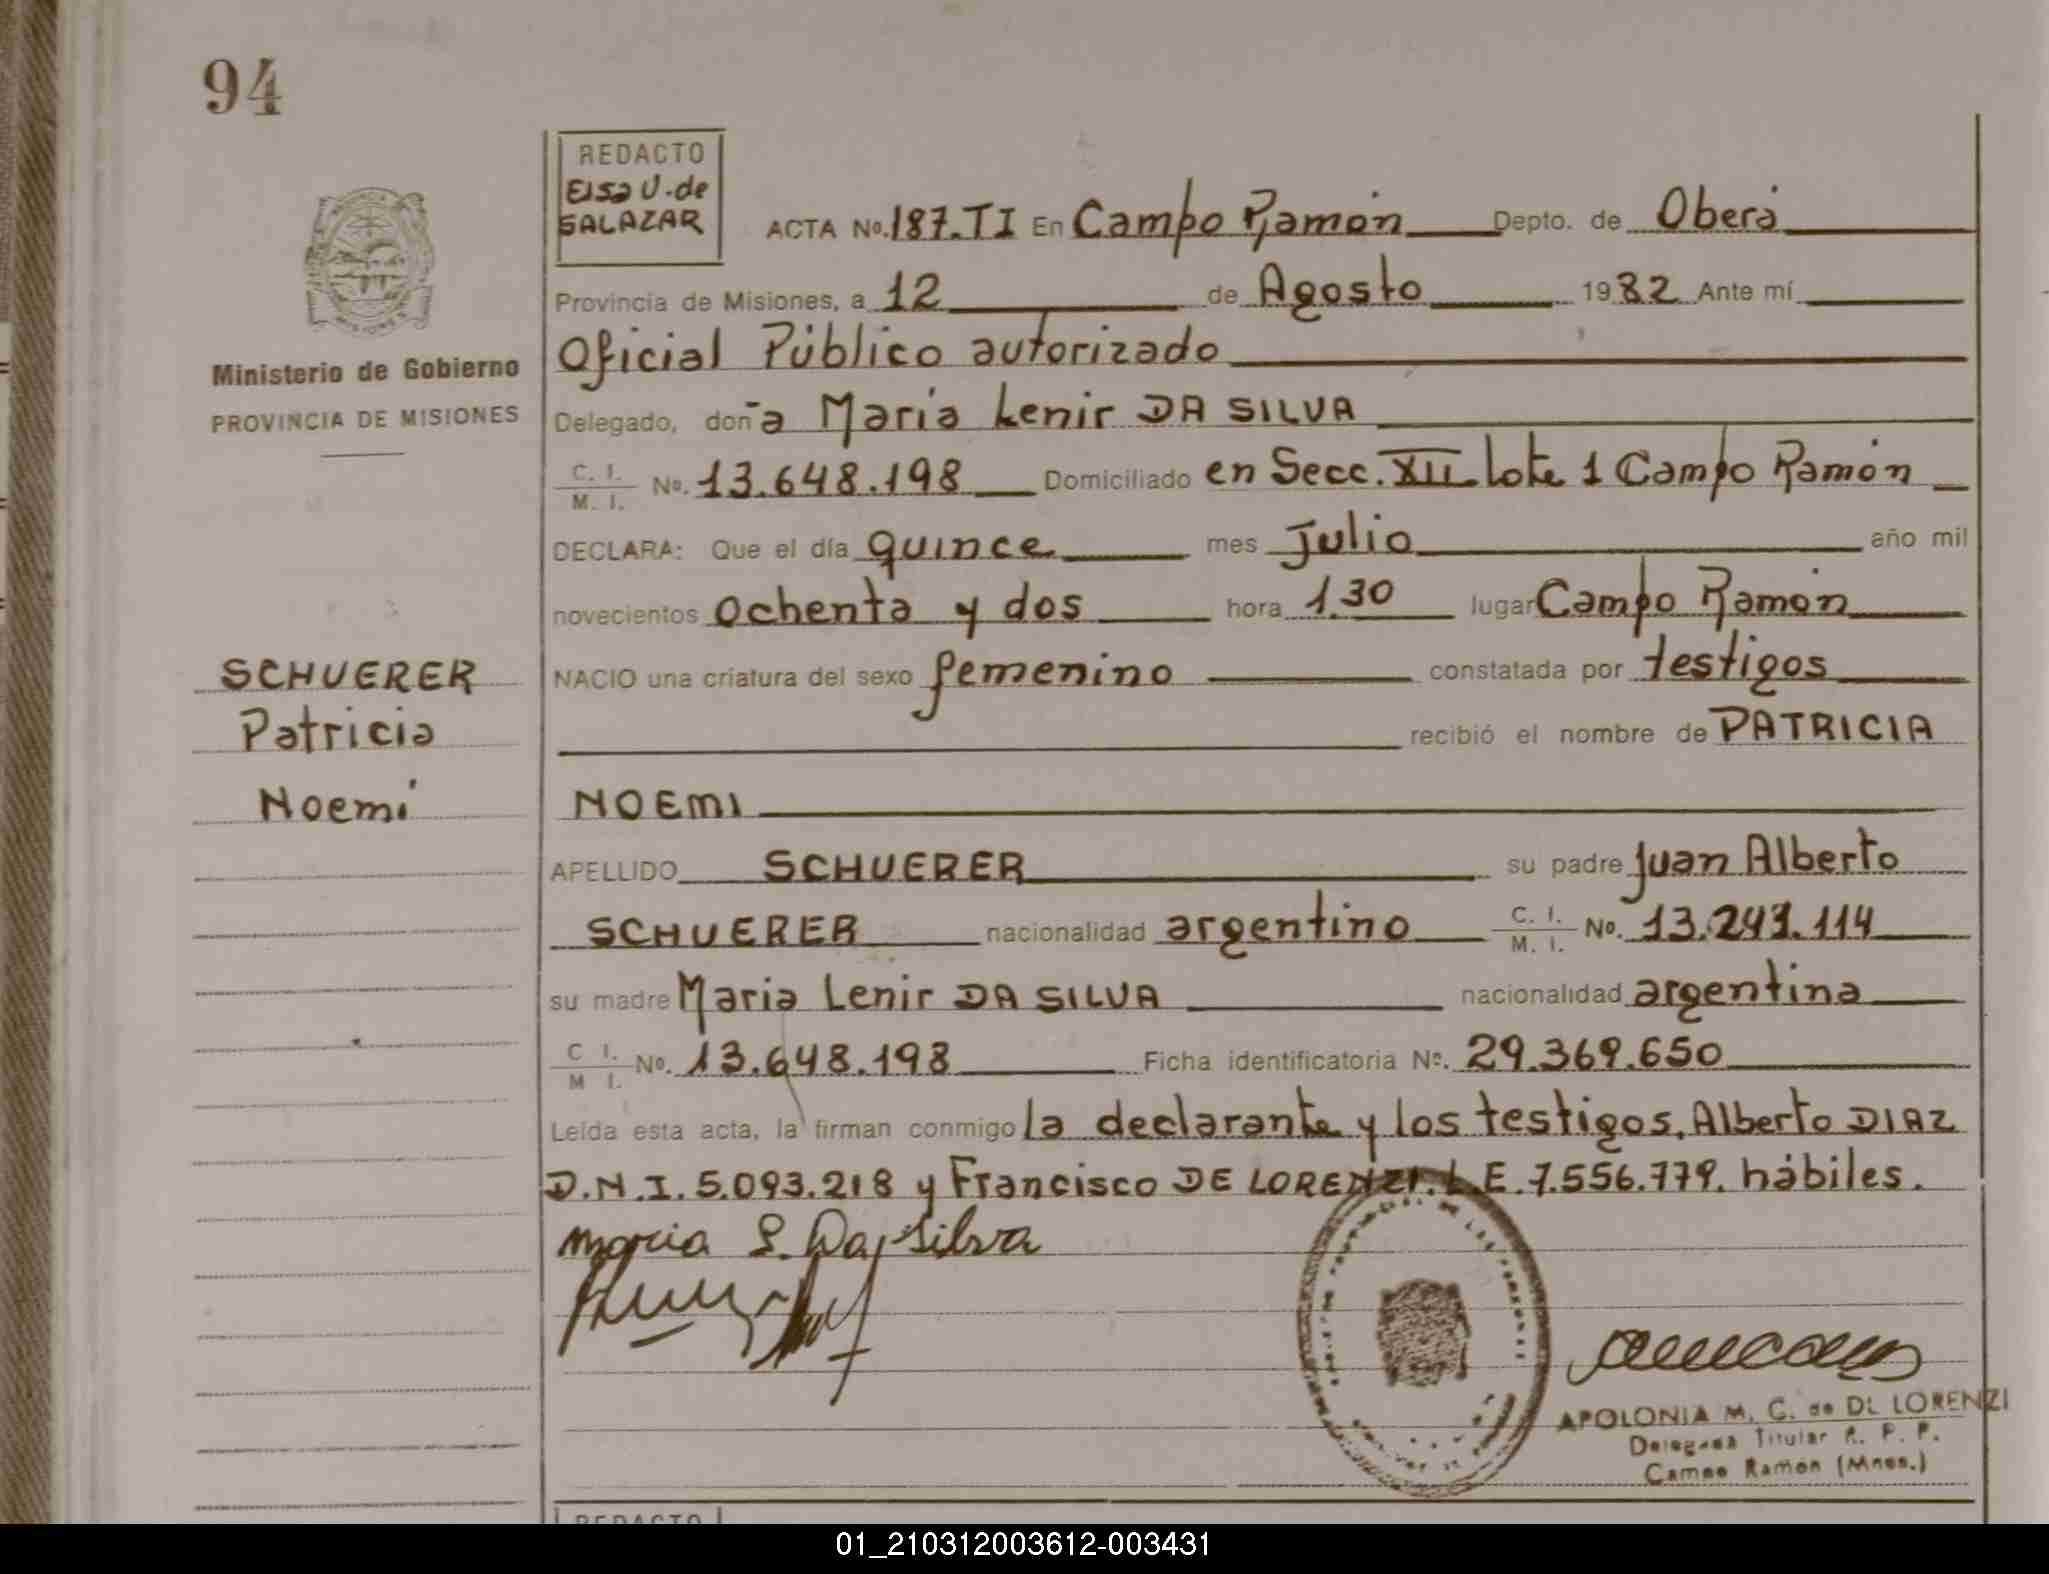 94
REDACTO
Elsa U. de
SALAZAR
ACTA No. 187.TI En Campo Ramón Depto. de Oberá
Provincia de Misiones, a 12 de Agosto 1982 Ante mí
Oficial Público autorizado
Ministerio de Gobierno
PROVINCIA DE MISIONES
Delegado, doña Maria Lenir DA SILVA
C. I. M. I. No. 13.648.198 Domiciliado en Secc. XII Lote 1 Campo Ramón
DECLARA: Que el día quince mes Julio año mil
novecientos ochenta y dos hora 1.30 lugar Campo Ramón
NACIO una criatura del sexo femenino constatada por testigos
SCHUERER
Patricia
Noemí
recibió el nombre de PATRICIA
NOEMI
APELLIDO SCHUERER su padre Juan Alberto
SCHUERER nacionalidad argentino C. I. M. I. No. 13.241.114
su madre Maria Lenir DA SILVA nacionalidad argentina
C I. M I. No. 13.648.198 Ficha identificatoria No. 29.369.650
Leída esta acta, la firman conmigo la declarante y los testigos. Alberto DIAZ
D.N.I. 5.093.218 y Francisco DE LORENZI. L.E. 7.556.779. hábiles.
Maria L. Da Silva
APOLONIA M. C. de DE LORENZI
Delegada Titular R. P. P.
Campo Ramón (Mnes.)
REDACTO
01_210312003612-003431